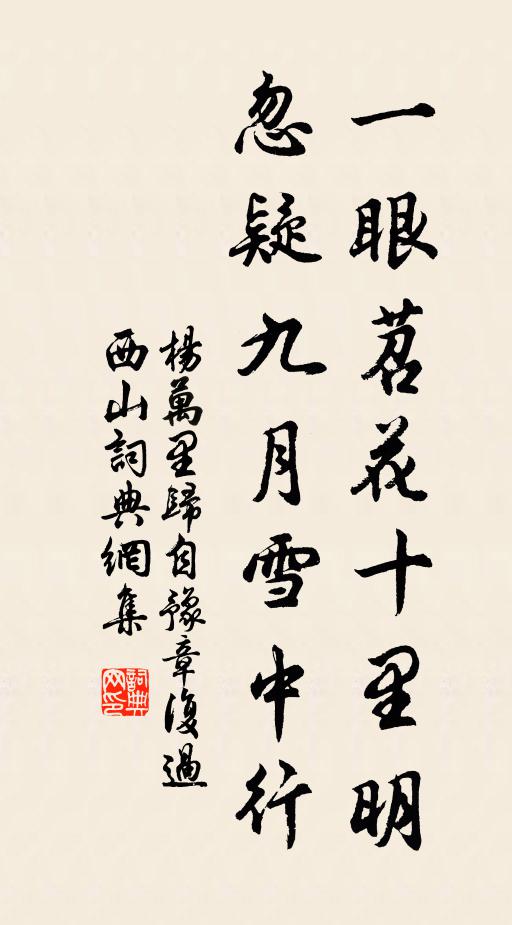 一眼苕花十里明
忽疑九月雪中行
楊萬里歸自豫章復過
西山詞典網集
詞典網印